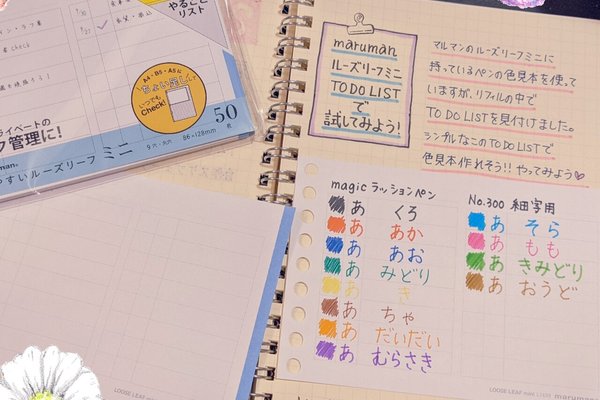 やることリスト
A4・B5・A5に
ちょい足し
いつでも
Check!
50
枚
ライベートの
ク管理に!
やすいルーズリーフ ミニ
9穴・丸穴 86×128mm
maruman
ルーズリーフミニ
TO DO LIST
で
試してみよう!
マルマンのルーズリーフミニに
持っているペンの色見本を使って
いますが、リフィルの中で
TO DO LISTを見付けました。
シンプルなこのTO DO LISTで
色見本作れそう!! やってみよう
magicラッションペン
あ くろ
あ あか
あ あお
あ みどり
あ き
あ ちゃ
あ だいだい
あ むらさき
No.300 細写用
あ そら
あ もも
あ きみどり
あ おうど
LOOSE LEAF mini
maruman
LOOSE LEAF mini